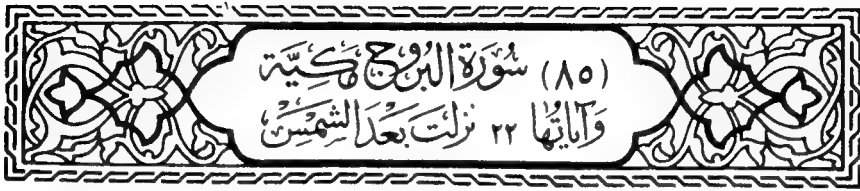 (٨٥) سُورَةُ الْبُرُوجِ مَكِيَّة
وَآيَاتُهَا ٢٢ نَزَلَتْ بَعْدَ الشَّمْسِ